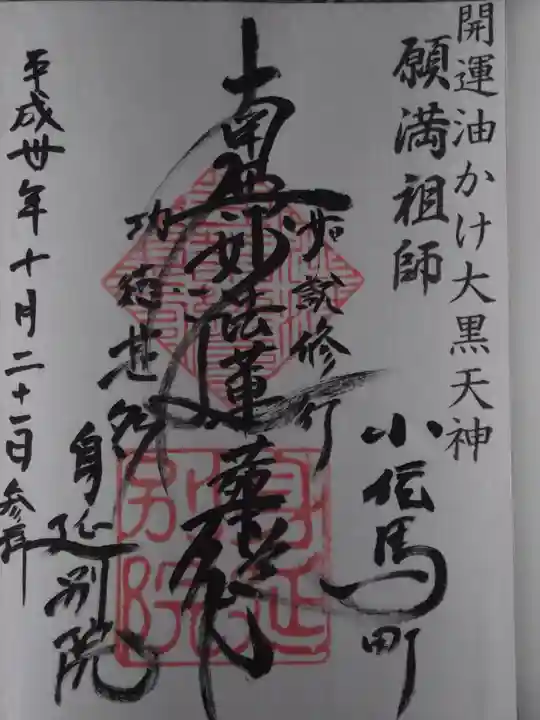 開運油かけ大黒天神
願満祖師
小伝馬町
如説修行
南無妙法蓮華経
功徳甚多
身延別院
平成卅年十月二十一日参拝
身延
別院